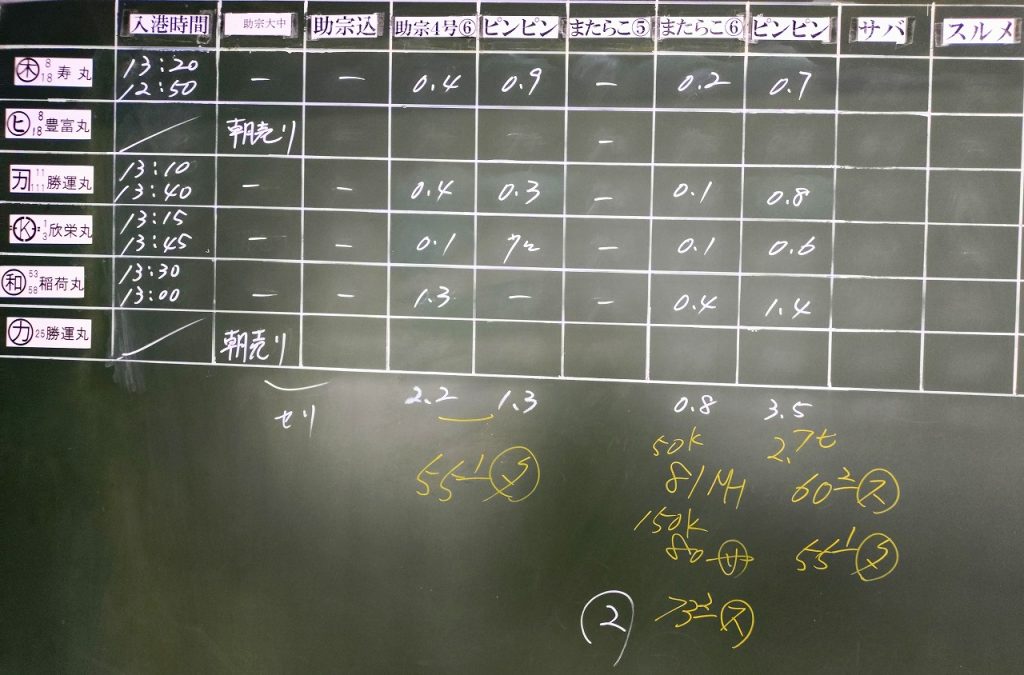 入港時間 助宗大中 助宗込 助宗4号⑥ ピンピン またらこ⑤ またらこ⑥ ピンピン サバ スルメ
木 8 18 寿丸 13:20 12:50 — — 0.4 0.9 — 0.2 0.7
ヒ 8 18 豊富丸 朝売り —
カ 11 111 勝運丸 13:10 13:40 — — 0.4 0.3 — 0.1 0.8
K 1 3 欣栄丸 13:15 13:45 — — 0.1 — 0.1 0.6
和 53 58 稲荷丸 13:30 13:00 — — 1.3 — — 0.4 1.4
カ 25 勝運丸 朝売り
セリ 2.2 1.3 0.8 3.5
50k 2.7t
55 1 81 60 2 ス
150k
80 サ 55 1
② 73 ス